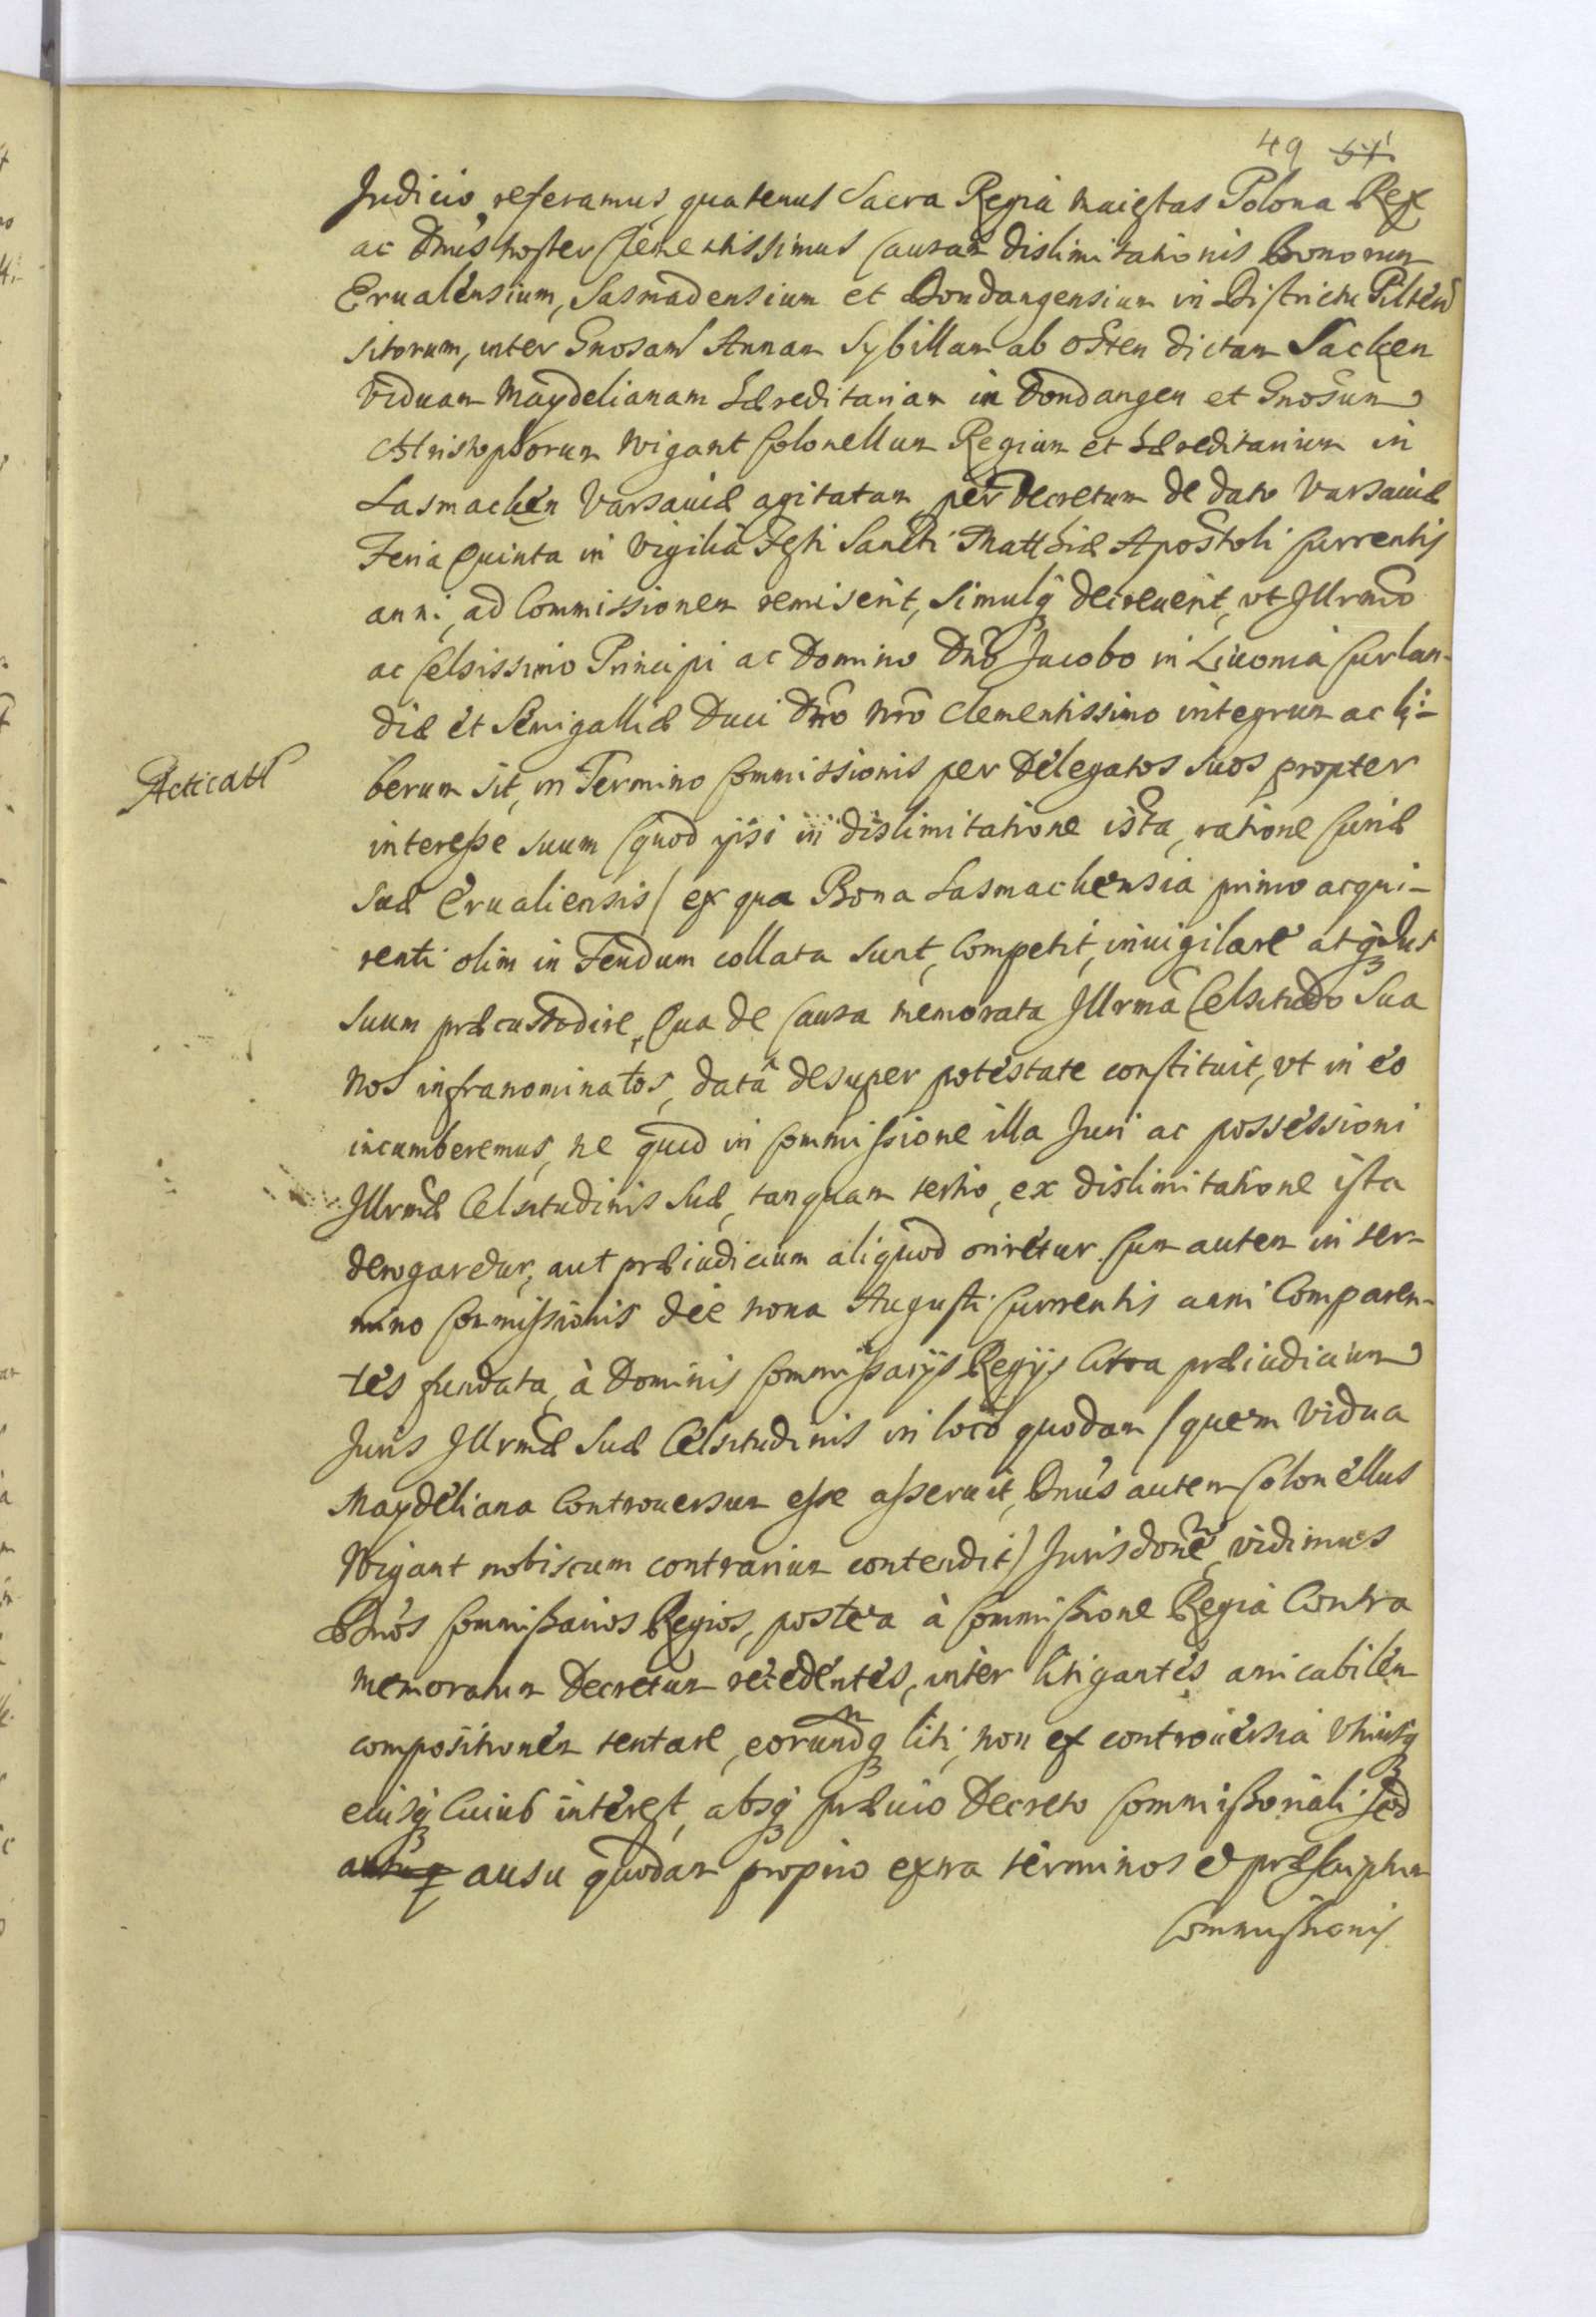 49 51
Judicio referamus, quatenus Sacra Regia Maiestas Polona Rex
ac Dnus noster Clementissimus Causam dislimitationis Bonorum
Erualensium, Sasmadensium et Dondangensium in Districtu Pilten
sitorum, inter Gnosam Annam Sybillam ab Osten dictam Sacken
Viduam Maydelianam Hæreditariam in Dondangen et Gnosum
Christophorum Wigant Colonellum Regium et Hæreditarium in
Sasmacken Varsauiæ agitatam, per Decretum de dato Varsauiæ
Feria Quinta in Vigilia Festi Sancti Matthiæ Apostoli Currentis
anni, ad Commissionem remiserit, simulq3 decreuerit, vt Illrmo
ac Celsissimo Principi ac Domino Dno Jacobo in Liuonia Curlan-
diæ et Semigalliæ Duci Dno Nro Clementissimo integrum ac li-
Acticatt
berum sit, in Termino Commissionis per Delegatos suos propter
interesse suum (quod ipsi in dislimitatione ista, ratione Curiæ
suæ Erualiensis / ex qua Bona Sasmackensia primo acqui-
renti olim in Feudum collata sunt, Competit, inuigilare atq3 Jus
suum præcustodire, Qua de Causa memorata Illrma Celsitudo Sua
nos infranominatos, datâ desuper potestate constituit, vt in eo
incumberemus, ne quid in Commissione illa Juri ac possessioni
Illrmæ Celsitudinis Suæ, tanquam tertio, ex dislimitatione ista
derogaretur, aut præiudicium aliquod oriretur. Cum autem in ter-
mino Commissionis die nona Augusti Currentis anni Comparen-
tes fundata, à Dominis Commissarijs Regijs Citra præiudicium
Juris Illrmæ Suæ Celsitudinis in loco quodam / quem Vidua
Maydeliana Controuersum esse asseruit, Dnus autem Colonellus
Wigant nobiscum contrarium contendit) Jurisdone, vidimus
Dnos Commissarios Regios, postea à Commissione Regia Contra
memoratum Decretum recedentes, inter litigantes amicabilem
compositionem tentare, eorundq3 liti, non ex controuersia vtriusq3
eiusq3 Cuius interest, absq3 præuio Decreto Commissoriali sed
ausu quodam proprio extra terminos et præscriptum
Commissionis